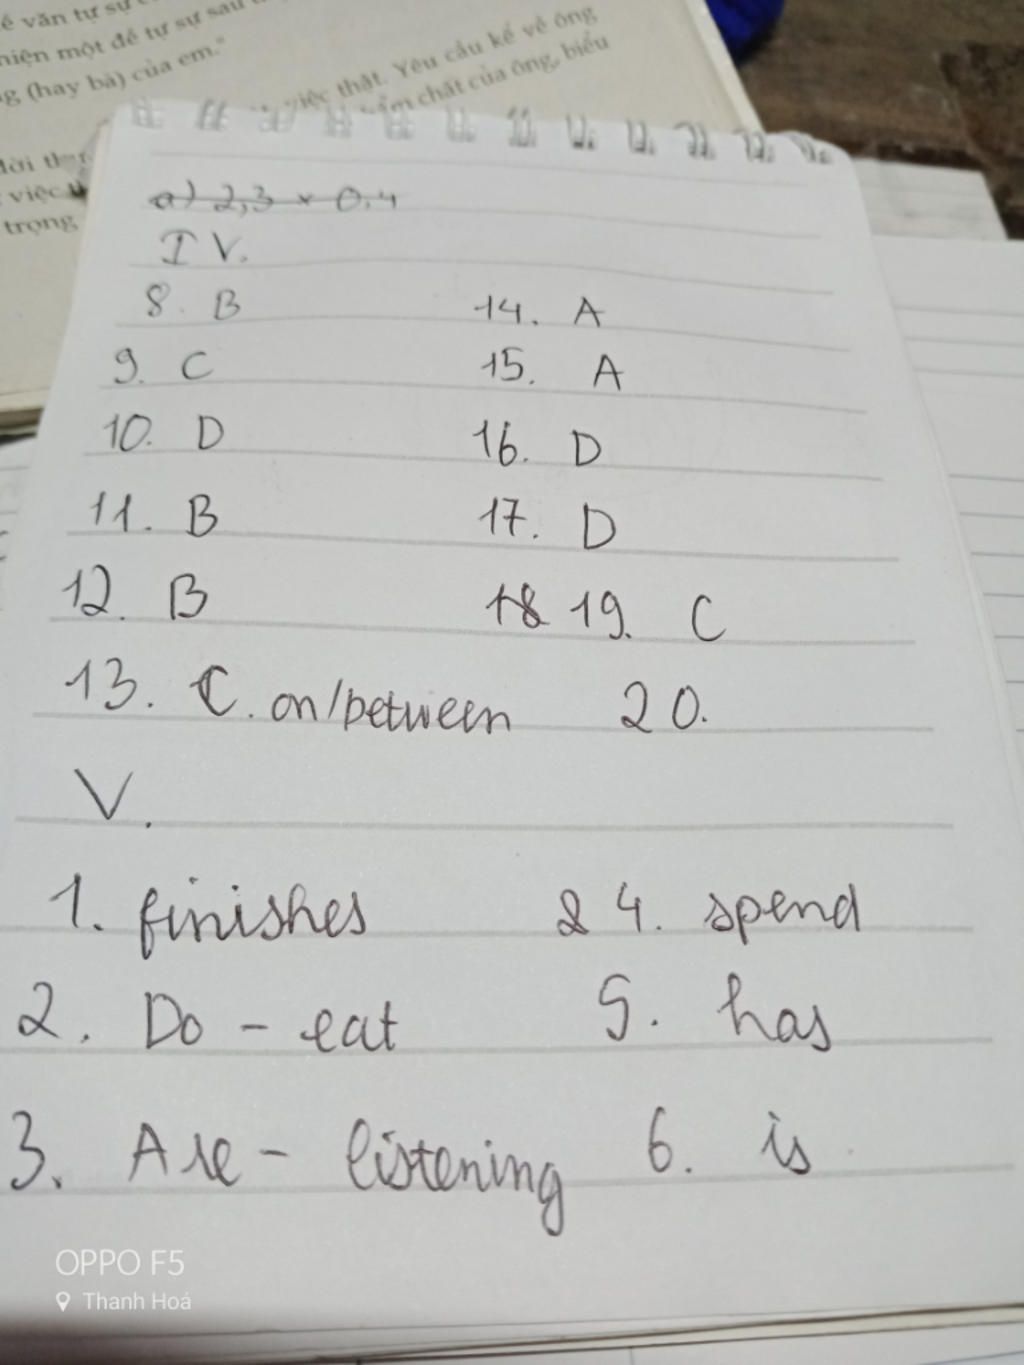 ể văn tự sự
hiện một đề tự sự sau
g (hay bà) của em."
việc thật. Yêu cầu kể về ông
chất của ông, biểu
đời
việc
trọng
a) 2,3 × 0,4
IV.
8. B 14. A
9. C 15. A
10. D 16. D
11. B 17. D
12. B 18 19. C
13. C. on/between 20.
V.
1. finishes 2 4. spend
2. Do - eat 5. has
3. Are - listening 6. is
OPPO F5
Thanh Hoá